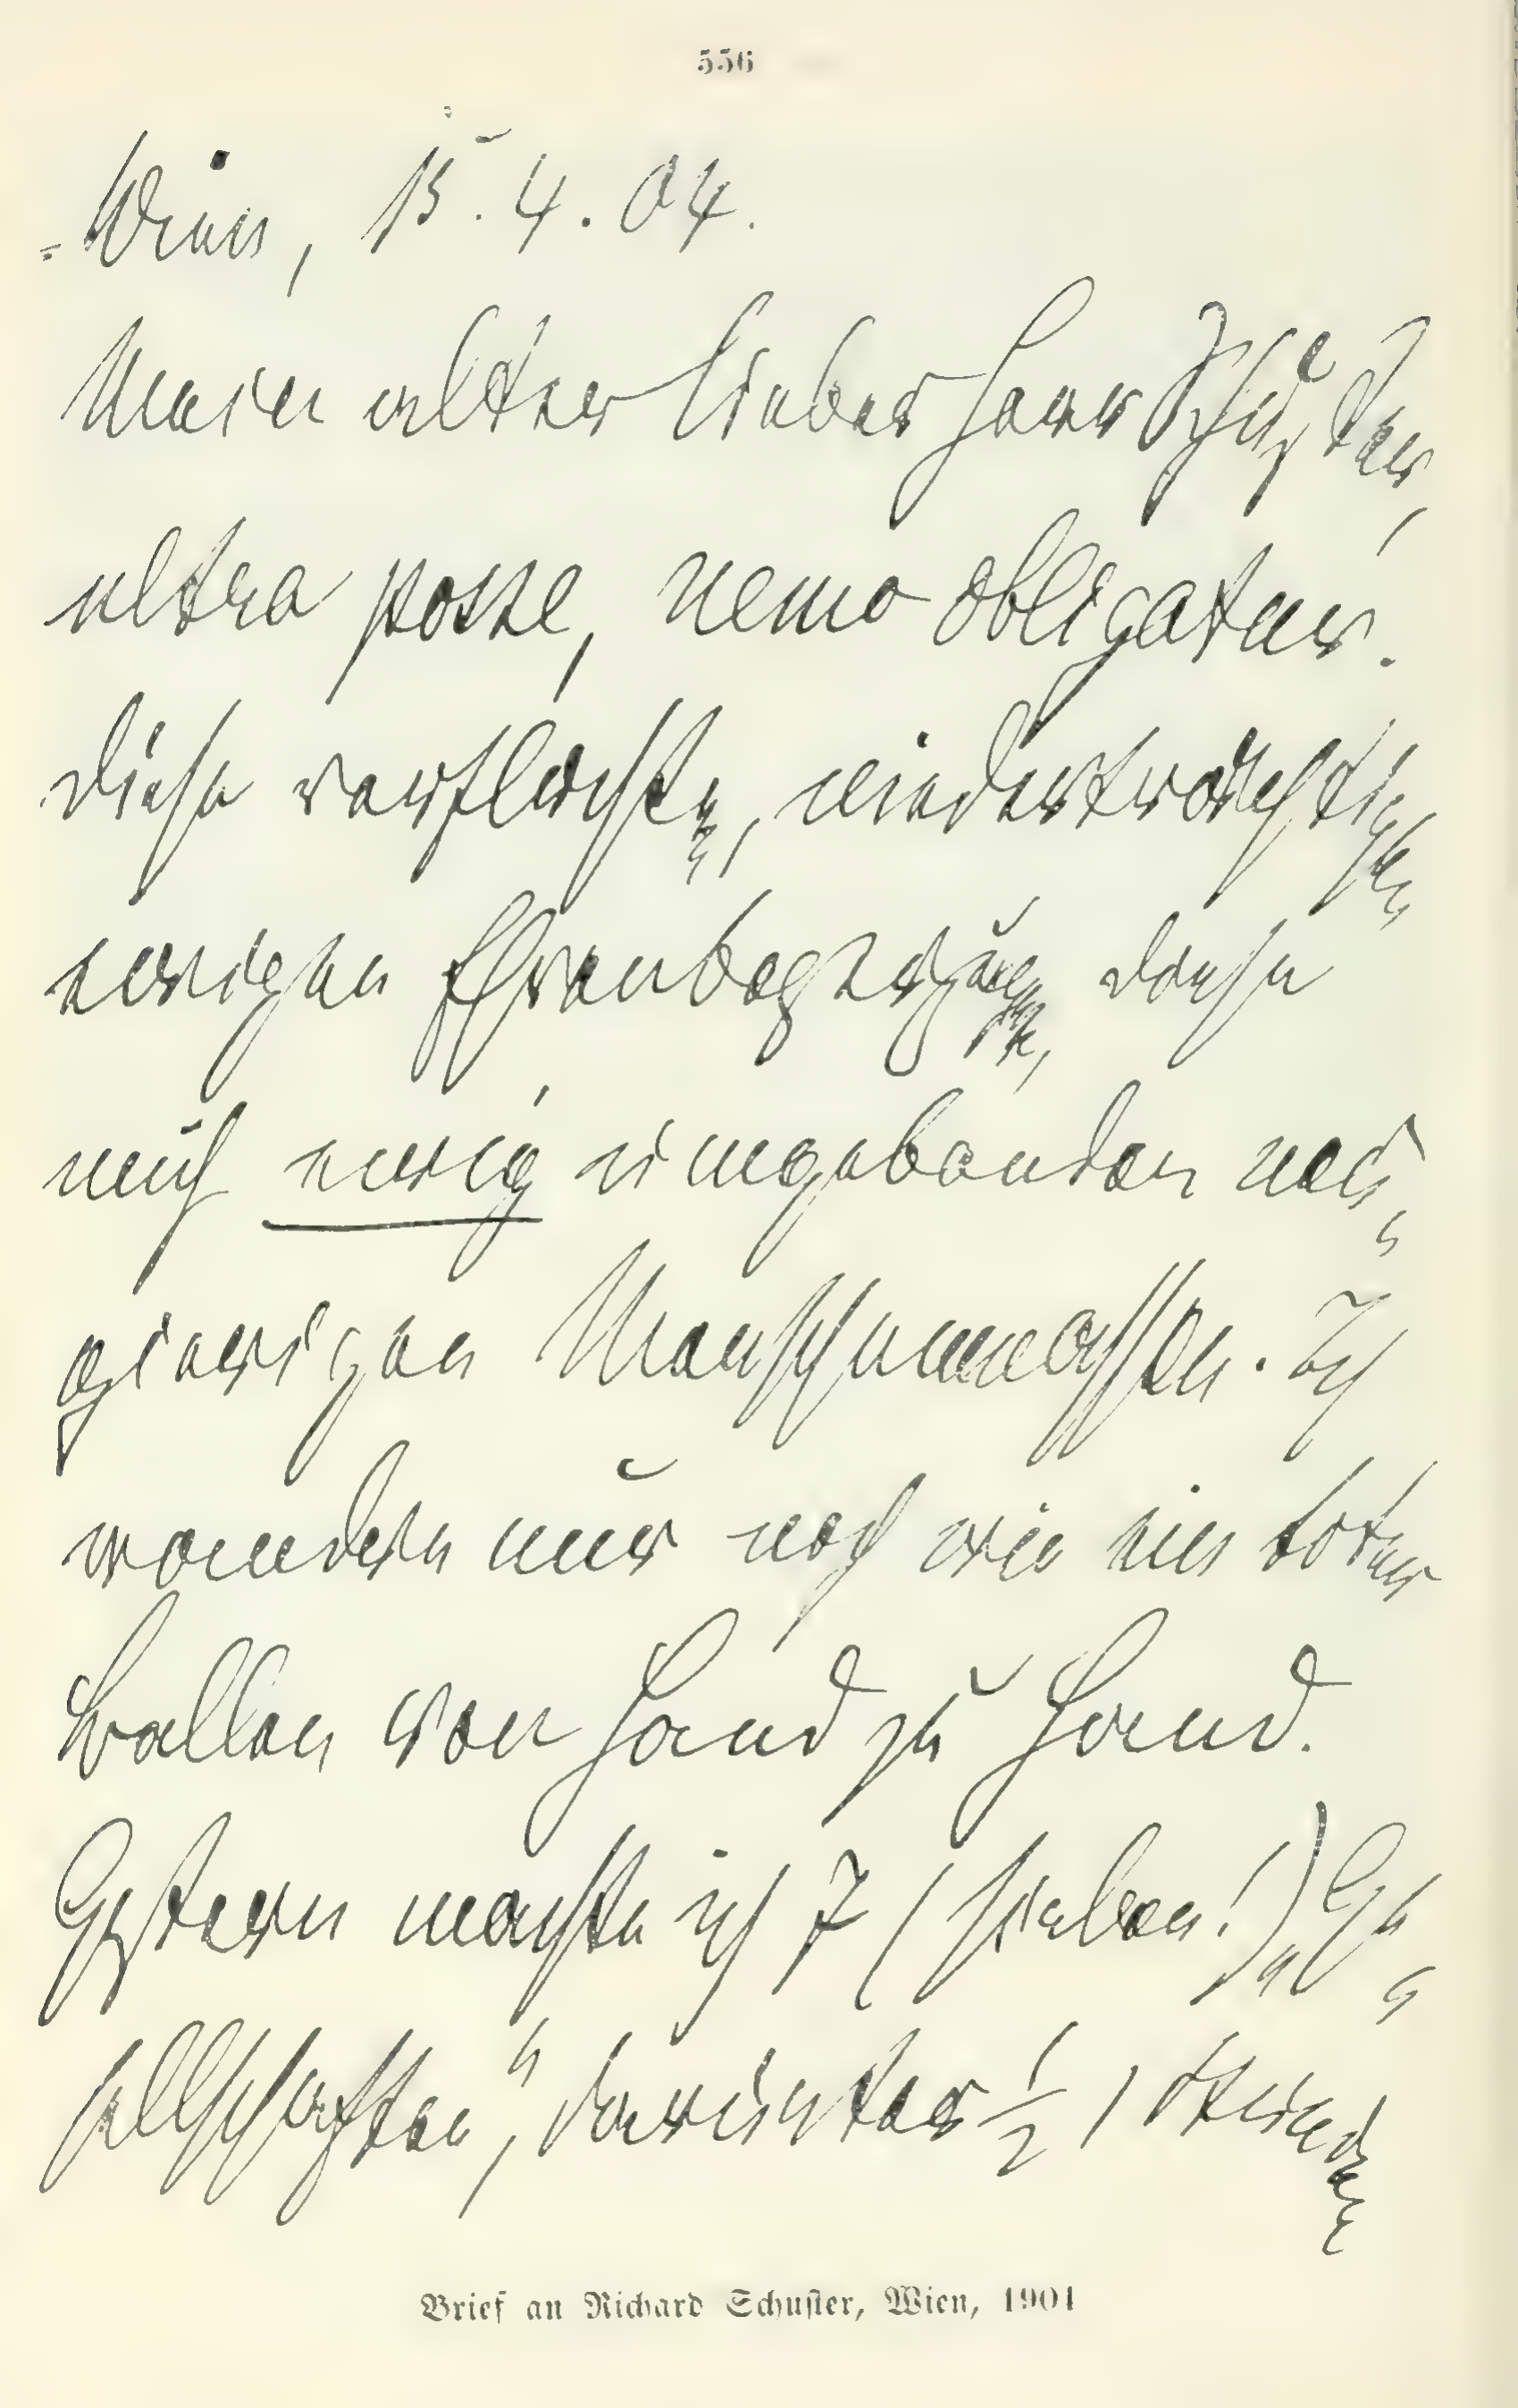 556
Wien, 15.4.04.
Mein alter lieber Herr Schuster,
ultra posse, nemo obligatur.
Diese verfluchten, niederträchtigen
ewigen diese
mich ewig umgebenden neu-
gierigen Menschenmassen. Ich
wandere nur noch wie ein toter
Ballen von Hand zu Hand.
Gestern machte ich 7 (sieben!) „Ge-
sellschaften“, darunter ½, 1 stünd
Brief an Richard Schuster, Wien, 1904